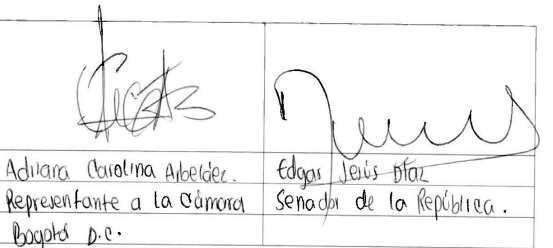 Adriana Carolina Arbeláez.
Representante a la Cámara
Bogotá D.C.
Edgar Jesús Díaz
Senador de la República.